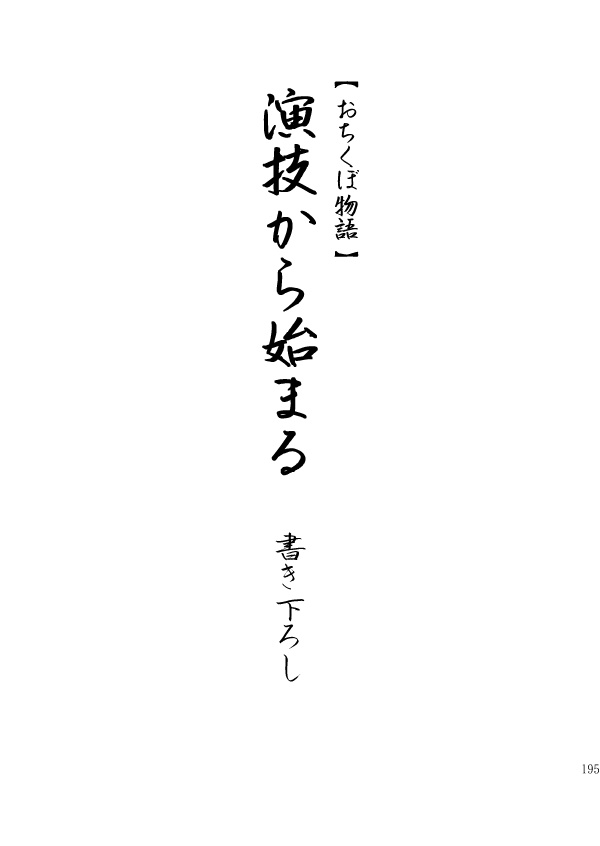 【おちくぼ物語】
演技から始まる
書き下ろし
195